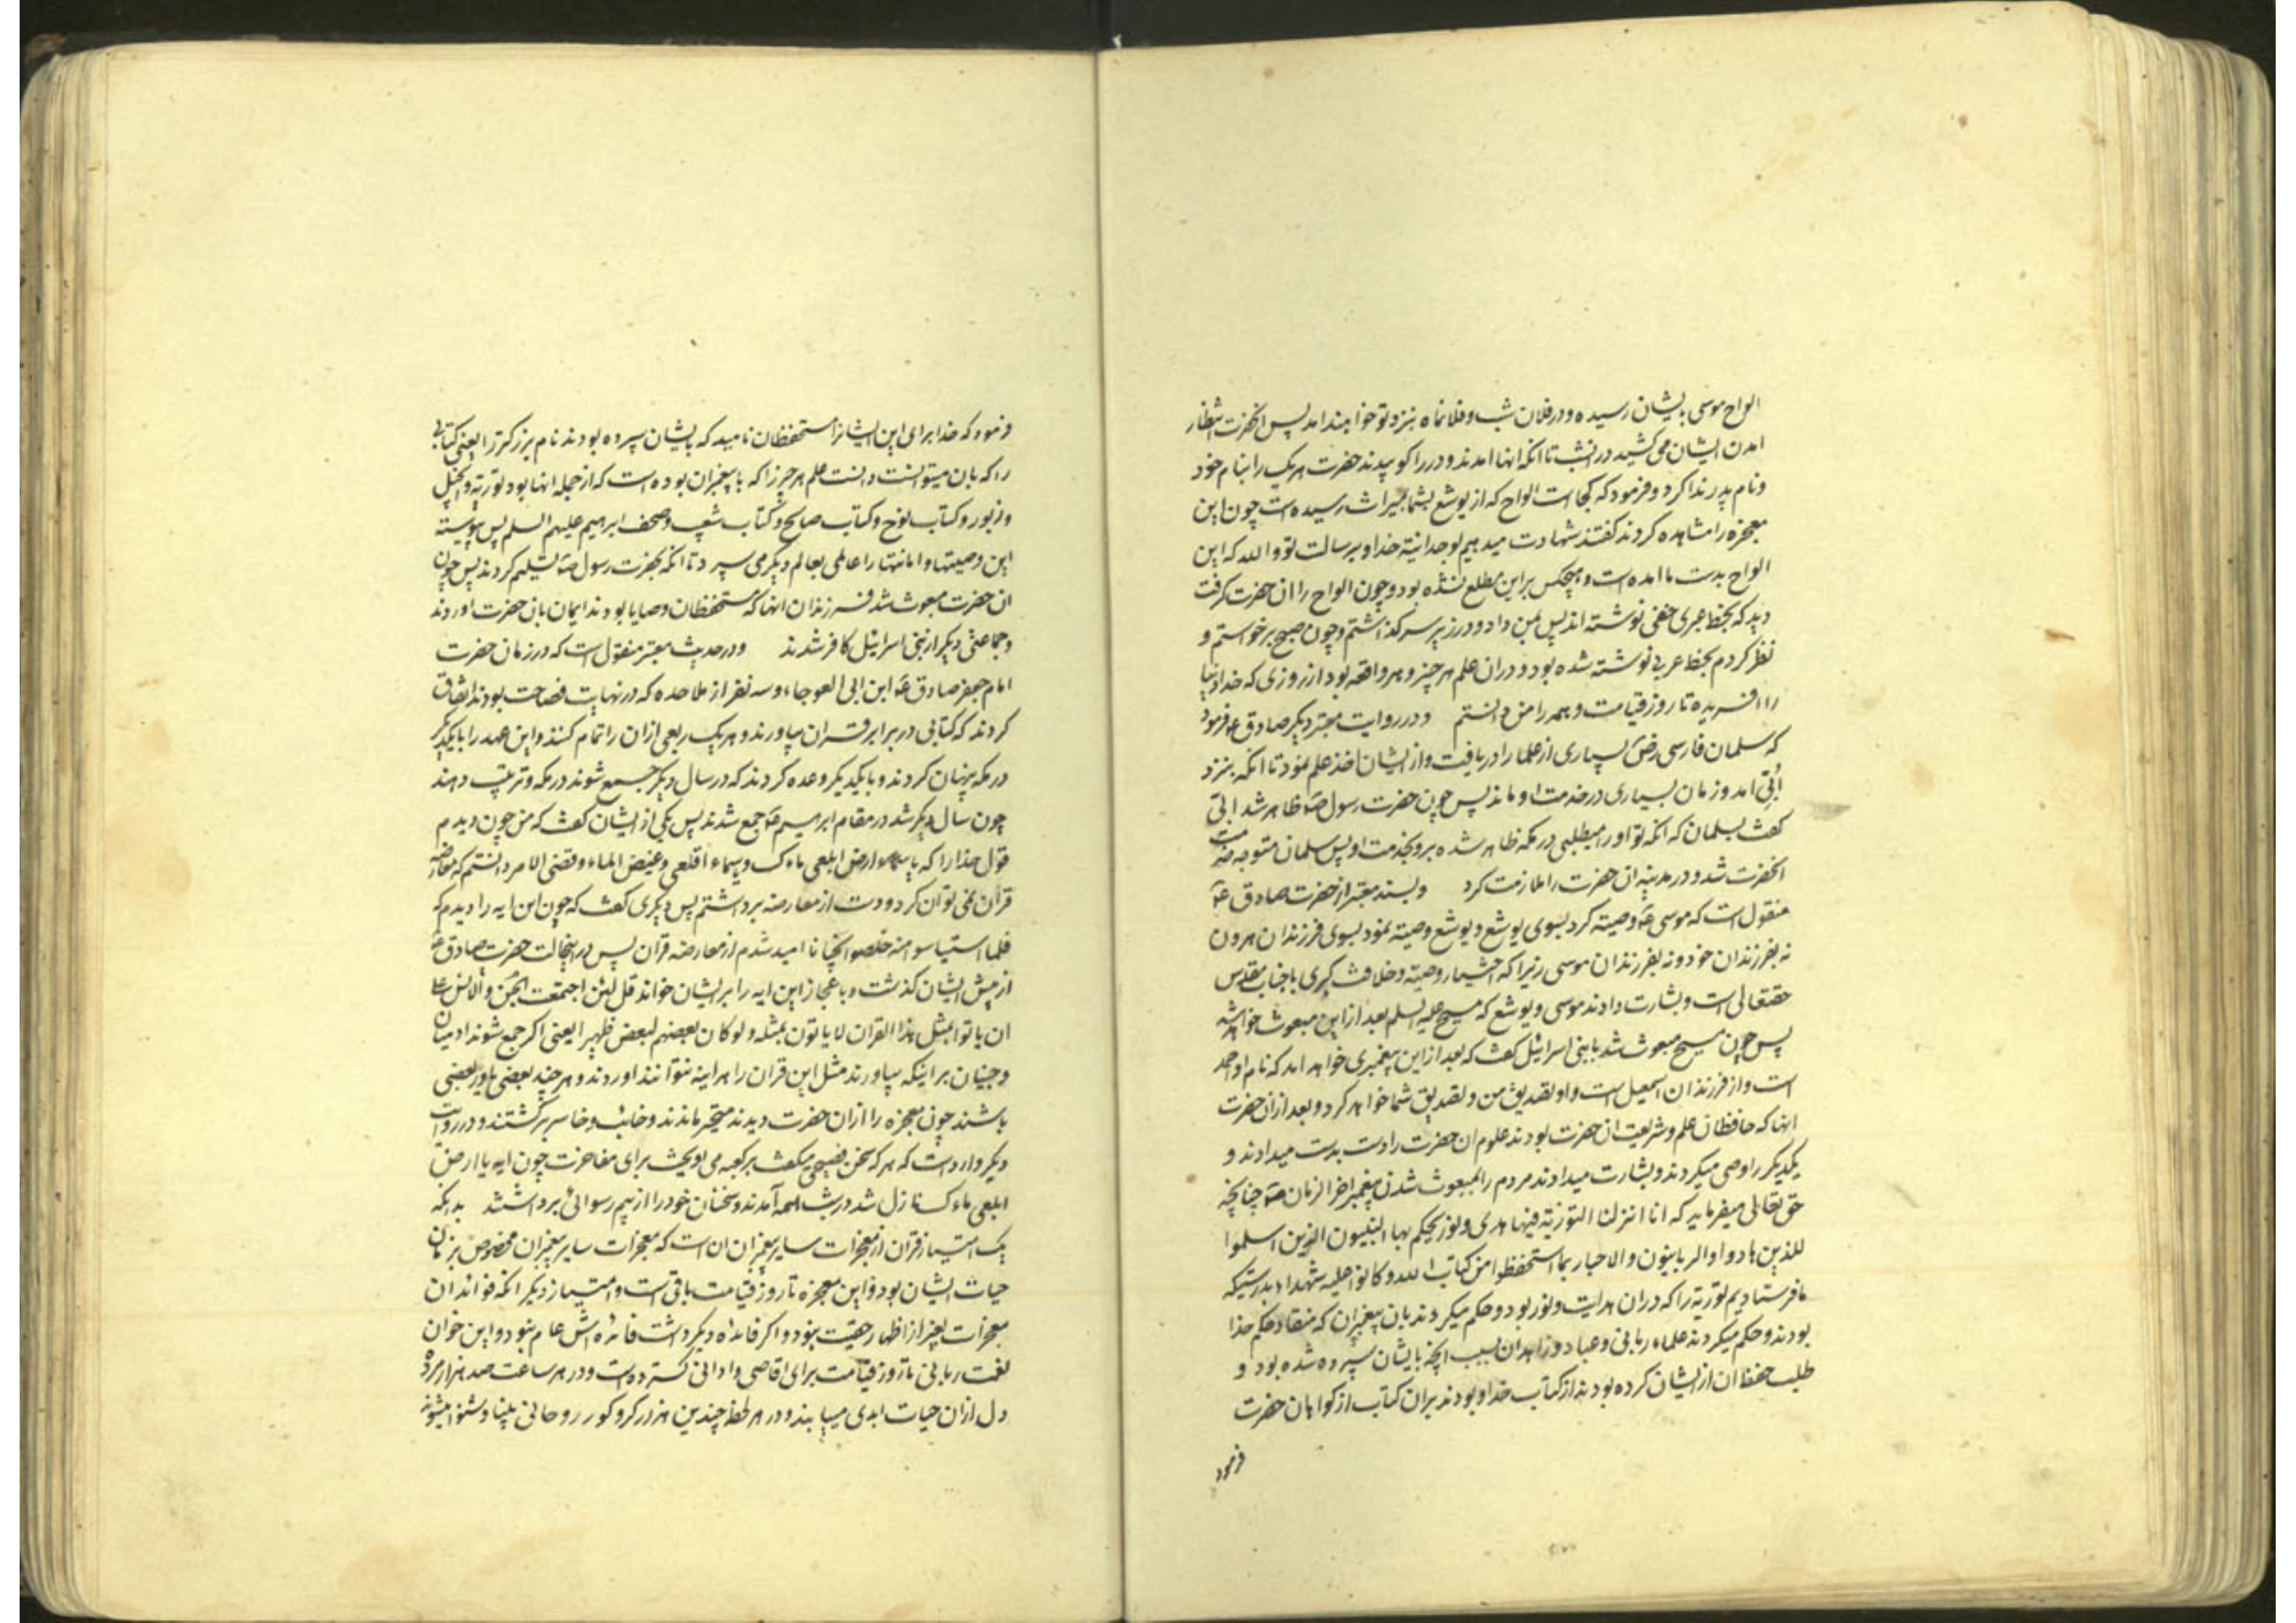 الواح موسی بایشان رسیده و در فلان شب و فلانماه بنزد تو خواهند امد پس انحضرت انتظار
امدن ایشان می کشید در انشب تا انکه انها امدند و در را کوبیدند حضرت هر یک را بنام خود
و نام پدر ندا کرد و فرمود که کجاست الواح که از یوشع بشما بمیراث رسیده است چون این
معجزه را مشاهده کردند کفتند شهادت میدهیم بوحدانیة خدا و برسالت تو والله که این
الواح بدست ما امده است و هیچکس بر این مطلع نشده بود و چون الواح را ان حضرت کرفت
دید که بخط عبری خفی نوشته اند پس بمن داد و در زیر سر کذاشتم و چون صبح برخواستم و
نظر کردم بخط عربی نوشته شده بود و در ان علم هر چیز و هر واقعه بود از روزی که خدا دنیا
را افریده تا روز قیامت و همه را من دانستم و در روایت معتبر دیکر صادق ع فرمود
که سلمان فارسی رض بسیاری از علما را دریافت و از ایشان اخذ علم نمود تا انکه بنزد
أبی امد و زمان بسیاری در خدمت او ماند پس چون حضرت رسول ص ظاهر شد ابی
کفت بسلمان که انکه تو او را میطلبی در مکه ظاهر شده برو بخدمت او پس سلمان متوجه خدمت
انحضرت شد و در مدینه ان حضرت را ملازمت کرد و بسند معتبر از حضرت صادق ع
منقول است که موسی ع وصیة کرد بسوی یوشع و یوشع وصیة نمود بسوی فرزندان هرون
نه بفرزندان خود و نه بفرزندان موسی زیرا که اختیار وصیة و خلافت کبری با جناب مقدس
حقتعالی است و بشارت دادند موسی و یوشع که مسیح علیه السلم بعد از این مبعوث خواهد شد
پس چون مسیح مبعوث شد با بنی اسرائیل کفت که بعد از این پیغمبری خواهد امد که نام او احمد
است و از فرزندان اسمعیل است و او تصدیق من و تصدیق شما خواهد کرد و بعد از ان حضرت
انها که حافظان علم و شریعت ان حضرت بودند علوم ان حضرت را دست بدست میدادند و
یکدیکر را وصی میکردند و بشارت میدادند مردم را بمبعوث شدن پیغمبر اخر الزمان ص چنانچه
حق تعالی میفرماید که انا انزلنا التوریة فیها هدی و نور یحکم بها النبیون الذین اسلموا
للذین هادوا و الربانیون و الاحبار بما استحفظوا من کتاب الله و کانوا علیه شهداء بدرستیکه
ما فرستادیم توریة را که در ان هدایت و نور بود و حکم میکردند بان پیغمبران که منقاد حکم خدا
بودند و حکم میکردند علماء ربانی و عباد و زاهدان بسبب انچه بایشان سپرده شده بود و
طلب حفظ ان از ایشان کرده بودند از کتاب خدا و بودند بران کتاب از کواهان حضرت
فرمود
فرمود که خدا برای این ایشانرا مستحفظان نامید که بایشان سپرده بودند نام بزرکتر را یعنی کتابی
را که بان میتوانست دانست علم هر چیز را که با پیغمبران بوده است که از جمله انها بود توریة و انجیل
و زبور و کتاب نوح و کتاب صالح و کتاب شعیب و صحف ابرهیم علیهم السلم پس پیوسته
این وصیتها و امانتها را عالمی بعالم دیکر می سپرد تا انکه بحضرت رسول ص تسلیم کردند پس چون
ان حضرت مبعوث شد فرزندان انها که مستحفظان وصایا بودند ایمان بان حضرت اوردند
و جماعتی دیکر از بنی اسرائیل کافر شدند و در حدیث معتبر منقول است که در زمان حضرت
امام جعفر صادق ع ابن ابی العوجاء و سه نفر از ملاحده که در نهایت فصاحت بودند اتفاق
کردند که کتابی در برابر قران بیاورند و هر یک ربعی از ان را تمام کنند و این عهد را با یکدیکر
در مکه پنهان کردند و با یکدیکر وعده کردند که در سال دیکر جمع شوند در مکه و ترتیب دهند
چون سال دیکر شد در مقام ابرهیم ع جمع شدند پس یکی از ایشان کفت که من چون دیدم
قول خدا را که یا ارض ابلعی ماءک و یا سماء اقلعی و غیض الماء و قضی الامر دانستم که معارضه
قران نمی توان کرد و دست از معارضه برداشتم پس دیکری کفت که چون این ایه را دیدم که
فلما استیاسوا منه خلصوا نجیا نا امید شدم از معارضه قران پس در اینحالت حضرت صادق ع
از پیش ایشان کذشت و باعجاز این ایه را بر ایشان خواند قل لئن اجتمعت الجن و الانس علی
ان یاتوا بمثل هذا القران لا یاتون بمثله و لو کان بعضهم لبعض ظهیرا یعنی اکر جمع شوند ادمیان
و جنیان بر اینکه بیاورند مثل این قران را هر اینه نتوانند اوردند و هر چند بعضی یاور بعضی
باشند چون معجزه را از ان حضرت دیدند متحیر ماندند و خائب و خاسر برکشتند و در روایت
دیکر وارد است که هر که سخن فصیحی میکفت بر کعبه می اویخت برای مفاخرت چون ایه یا ارض
ابلعی ماءک نازل شد در شب همه آمدند و سخنان خود را از بیم رسوائی برداشتند بدانکه
یک امتیاز قران از معجزات سایر پیغمبران ان است که معجزات سایر پیغمبران مخصوص بزمان
حیات ایشان بود و این معجزه تا روز قیامت باقی است و امتیاز دیکر انکه فواید ان
معجزات بغیر از اظهار حقیت نبود و اکر فائده دیکر داشت فائده اش عام نبود و این خوان
نعمت ربانی تا روز قیامت برای اقاصی و ادانی کسترده است و در هر ساعت صد هزار مرده
دل از ان حیات ابدی مییابند و در هر لحظه چندین هزار کر و کور روحانی بینا و شنوا میشوند